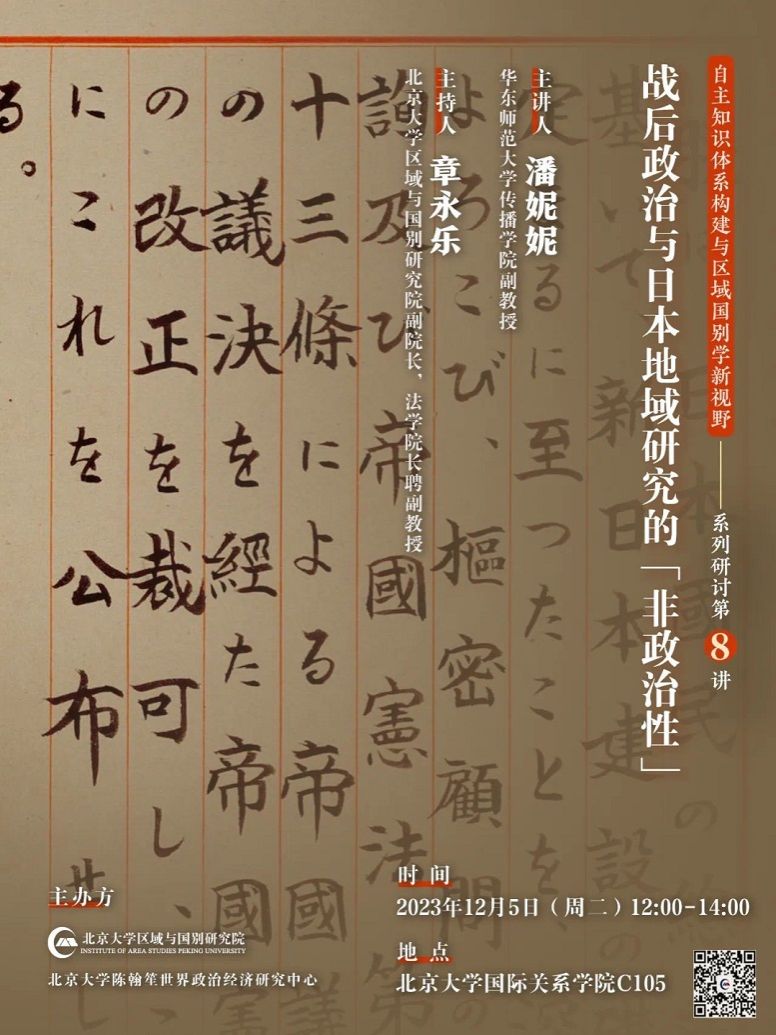 自主知识体系构建与区域国别学新视野——系列研讨第8讲
战后政治与日本地域研究的「非政治性」
主讲人 潘妮妮
华东师范大学传播学院副教授
主持人 章永乐
北京大学区域与国别研究院副院长，法学院长聘副教授
日本國民の
基いて、新日本建設
定まるに至つたことを、
よろこび、樞密顧問
詢及び帝國憲法第
十三條による帝國議
の議決を經た帝國憲
の改正を裁可し、
にこれを公布せし
る。
主办方
北京大学区域与国别研究院
INSTITUTE OF AREA STUDIES PEKING UNIVERSITY
北京大学陈翰笙世界政治经济研究中心
时间
2023年12月5日（周二）12:00-14:00
地点
北京大学国际关系学院C105